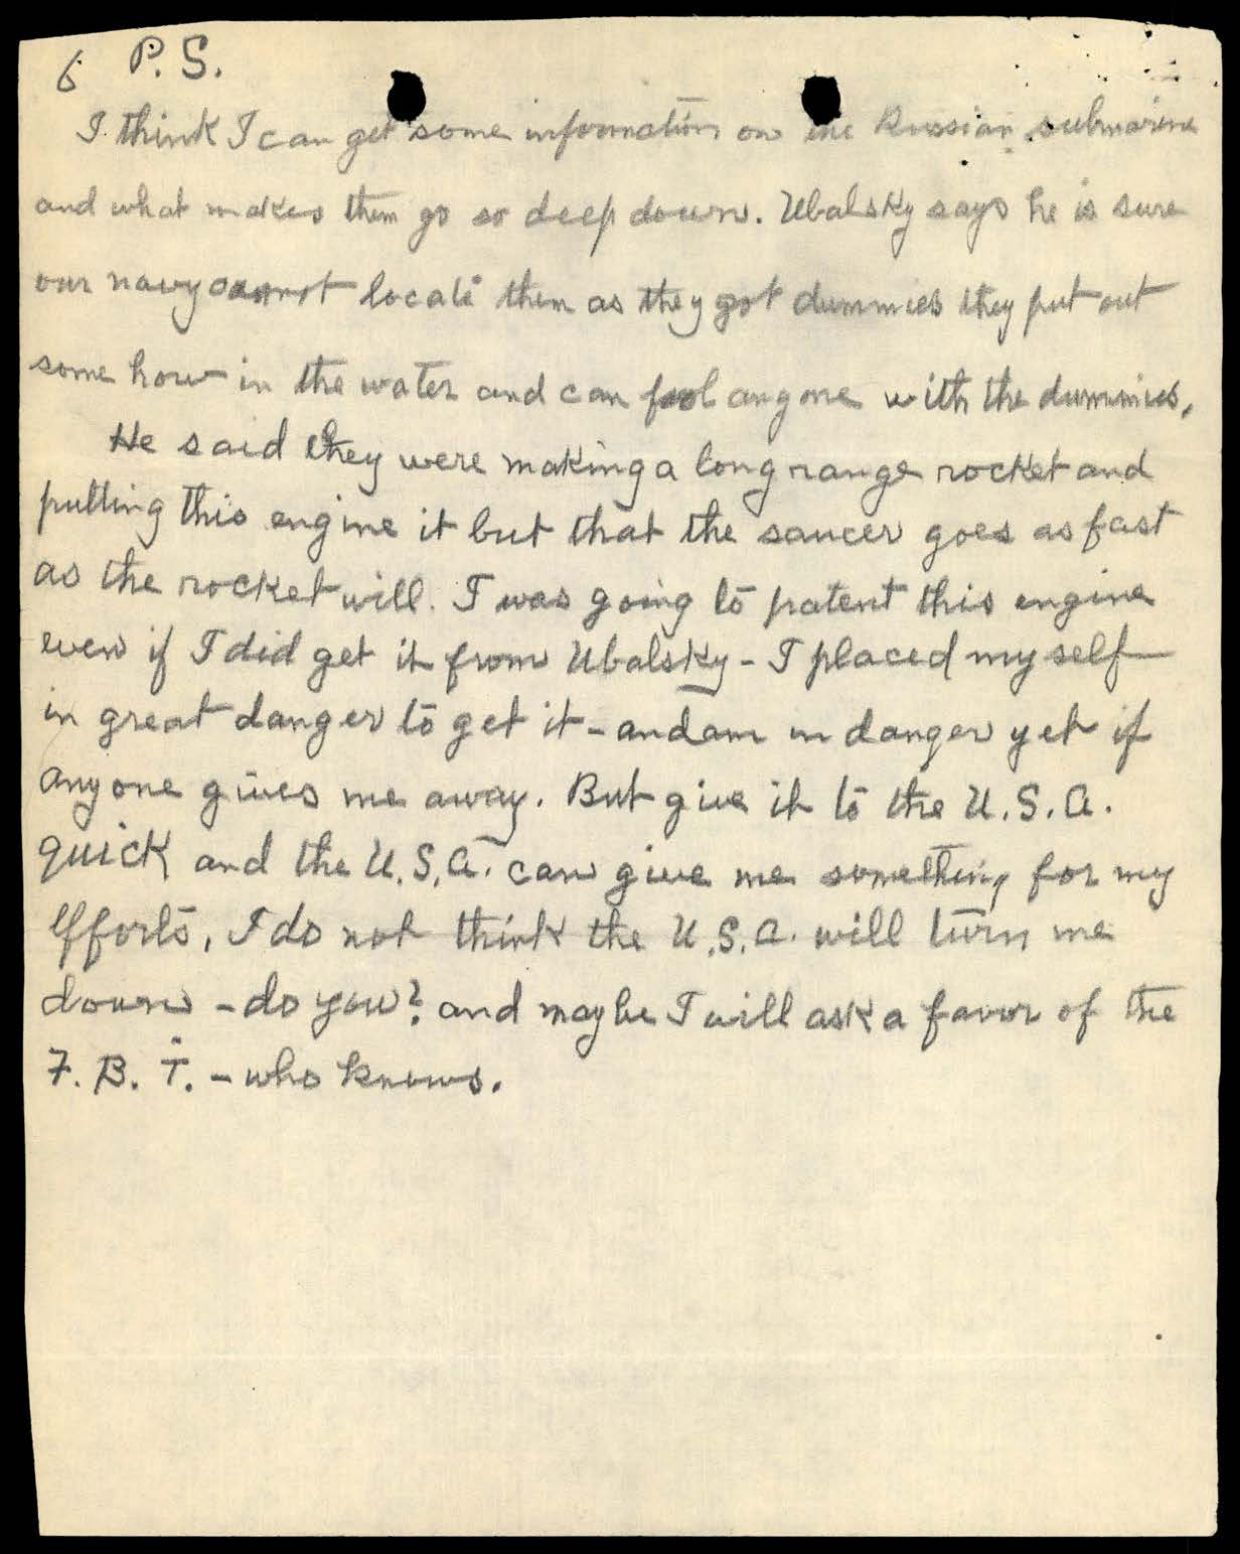 6 P.S.
I think I can get some information on the Russian submarine
and what makes them go so deep down. Ubalsky says he is sure
our navy cannot locate them as they got dummies they put out
some how in the water and can fool anyone with the dummies.
He said they were making a long range rocket and
putting this engine it but that the saucer goes as fast
as the rocket will. I was going to patent this engine
even if I did get it from Ubalsky - I placed my self
in great danger to get it - and am in danger yet if
anyone gives me away. But give it to the U.S.A.
quick and the U.S.A. can give me something for my
efforts, I do not think the U.S.A. will turn me
down - do you? and maybe I will ask a favor of the
F. B. I. - who knows.